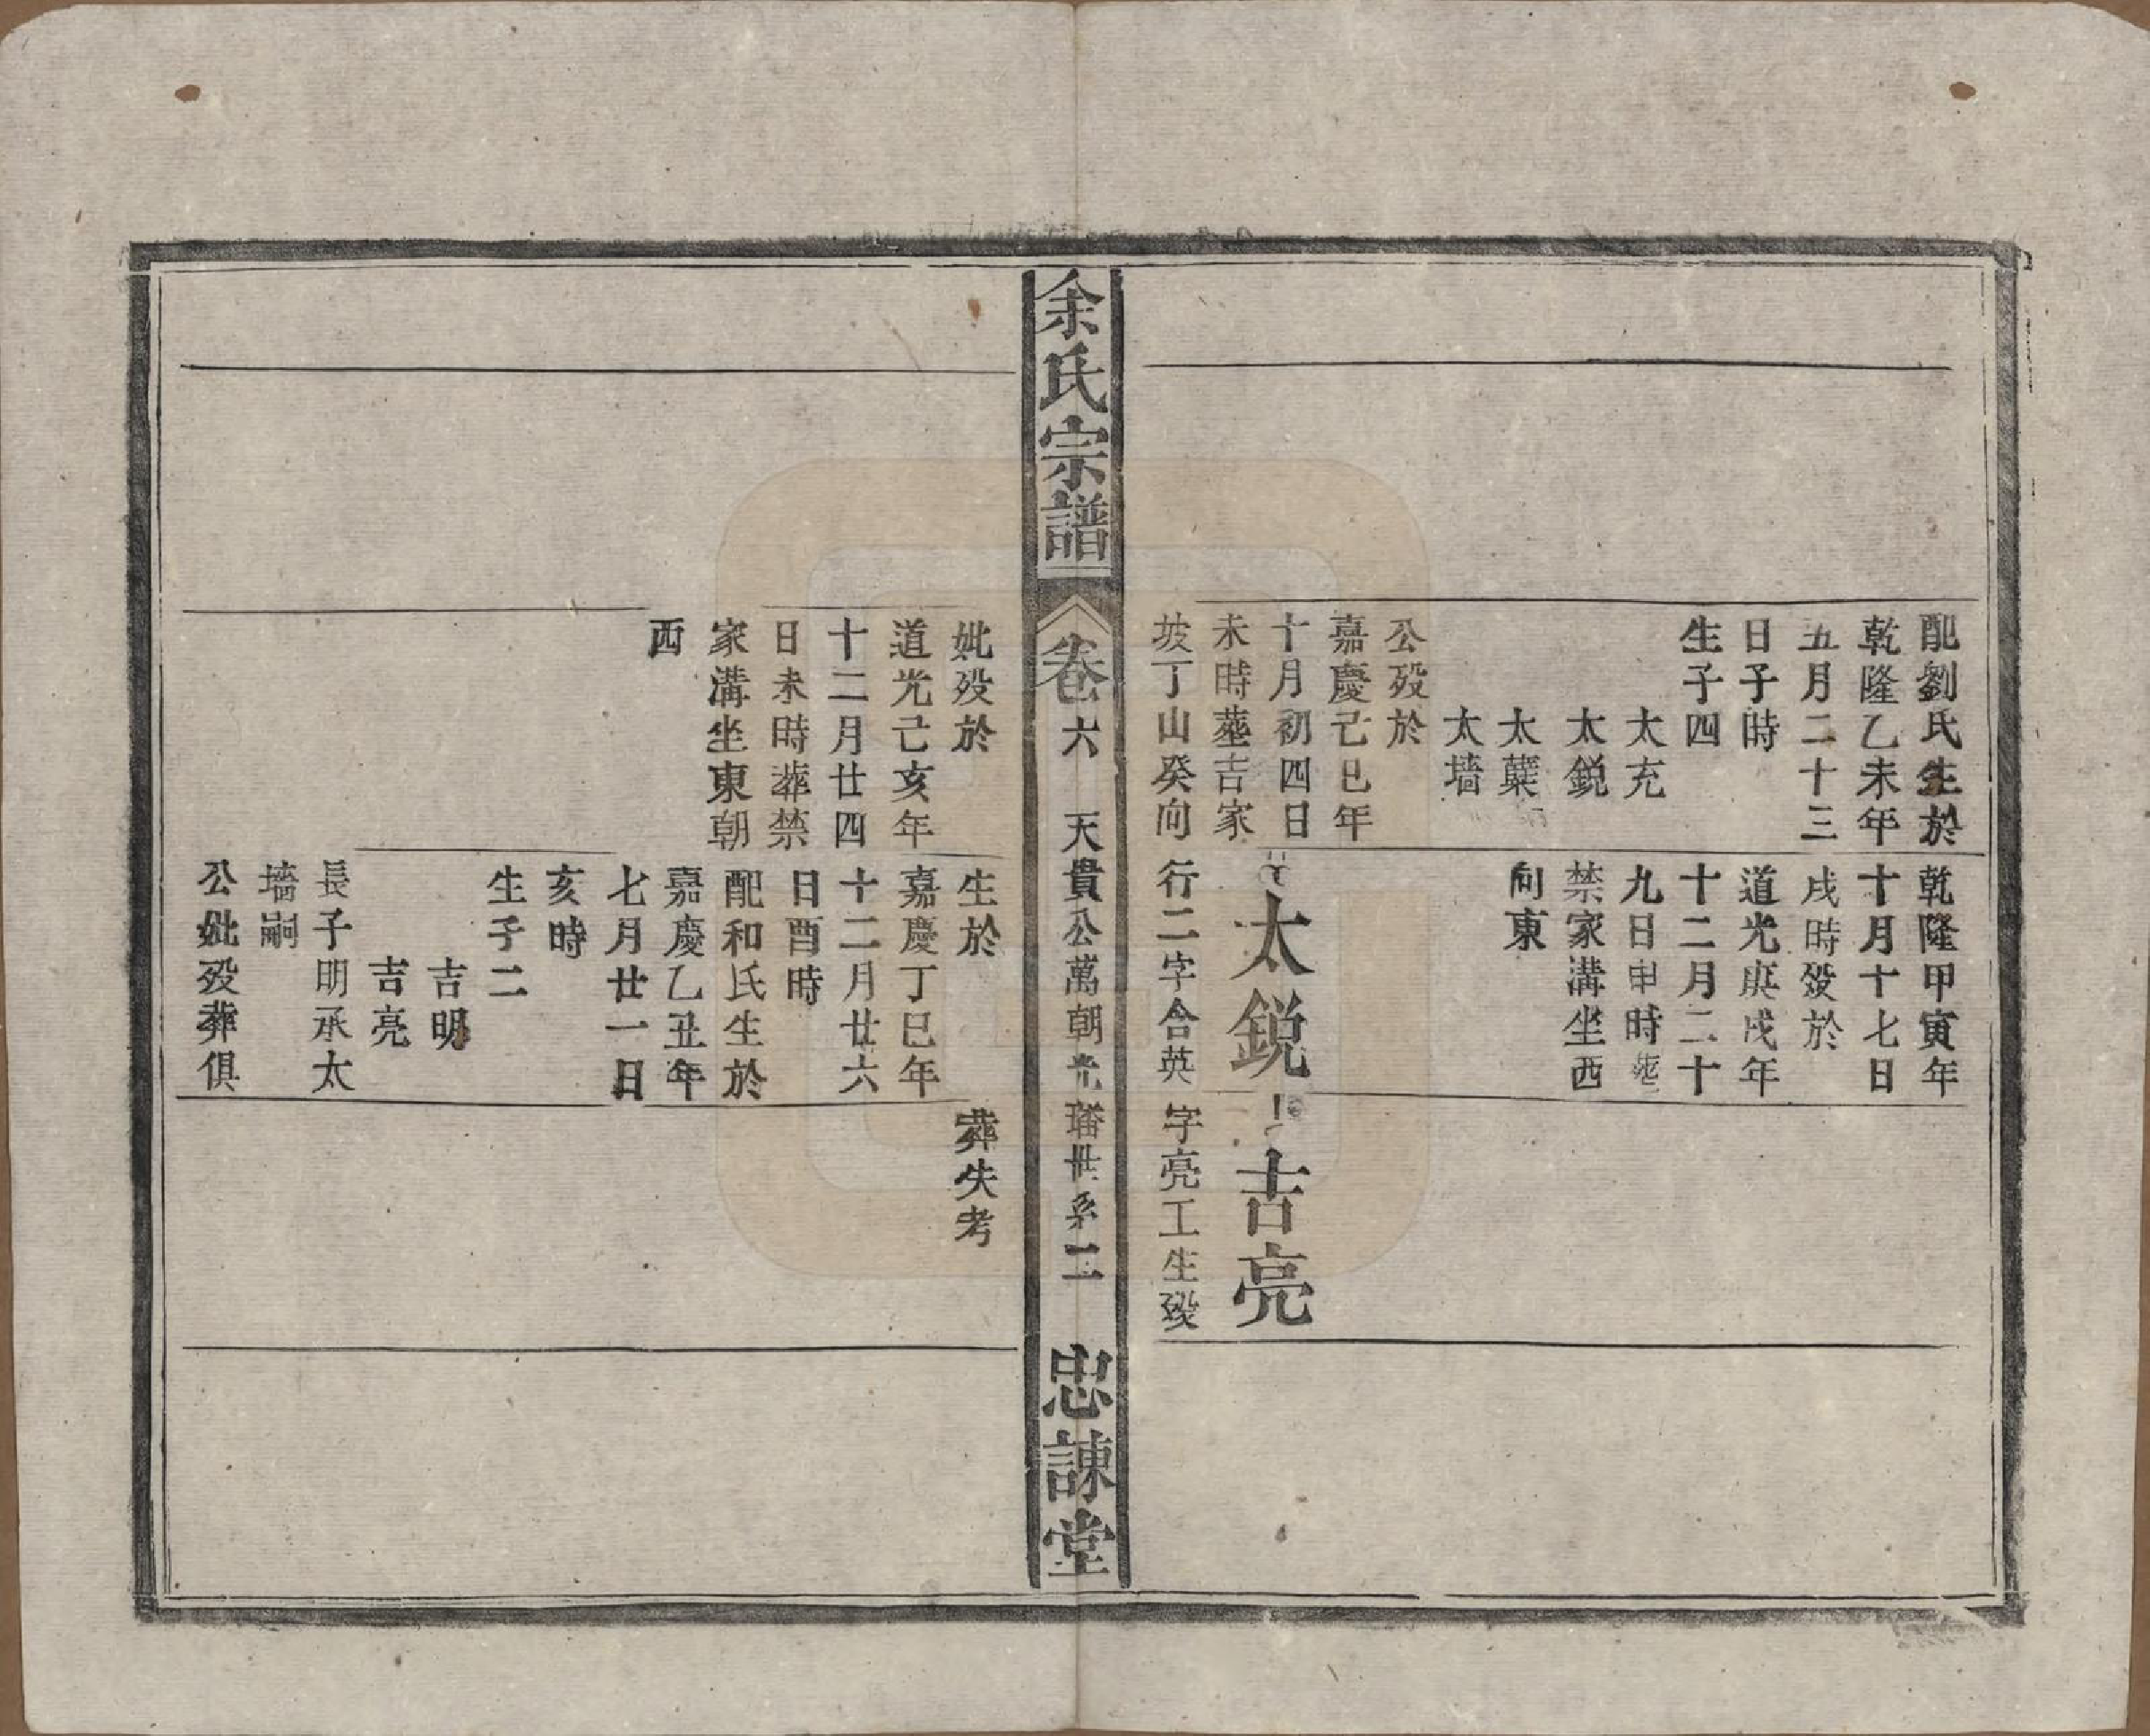 配劉氏生於
乾隆乙未年
五月二十三
日子時
生子四
太充
太鋭
太蘗
太墻
公歿於
嘉慶己巳年
十月初四日
未時葬吉家
坡丁山癸向
乾隆甲寅年
十月十七日
戌時歿於
道光庚戌年
十二月二十
九日申時葬
禁家溝坐西
向東
太鋭
行二字合英
吉亮
字亮工生歿
余氏宗譜
卷六
天貴公萬朝光璠世系二
忠諫堂
妣歿於
道光己亥年
十二月廿四
日未時葬禁
家溝坐東朝
西
生於
嘉慶丁巳年
十二月廿六
日酉時
配和氏生於
嘉慶乙丑年
七月廿一日
亥時
生子二
吉明
吉亮
長子明承太
墻嗣
公妣歿葬俱
葬失考